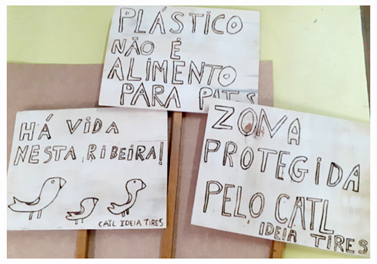 PLÁSTICO
NÃO É
ALIMENTO
PARA
HÁ VIDA
NESTA RIBEIRA!
CATL IDEIA TIRES
ZONA
PROTEGIDA
PELO CATL
IDEIA TIRES